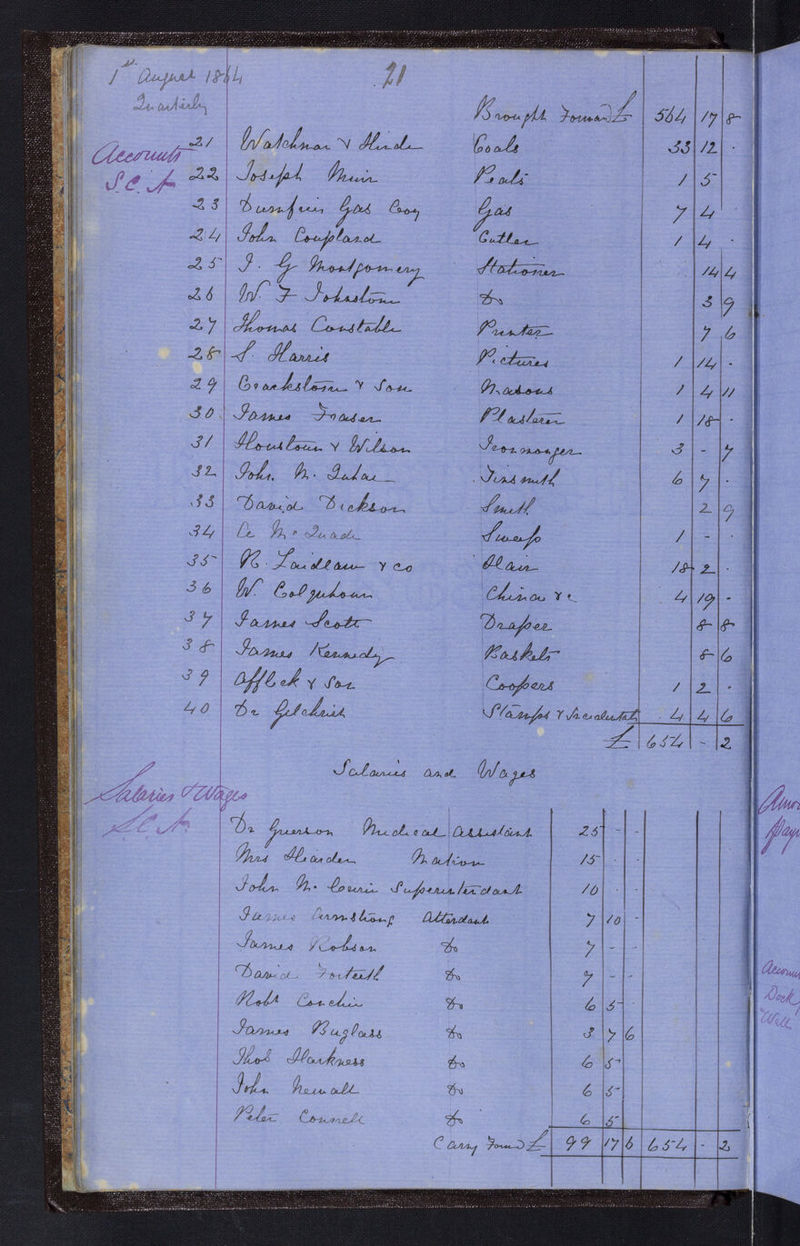 1st August 1864 21
Quarterly
Brought Forward £ 564 17 8
Accounts
S.C.A.
21 Hinde Coals 33 12 .
22 Joseph Muir Peats 1 5
23 Dumfries Gas Coy Gas 7 4
24 John Coupland Cutler 1 4 .
25 J. G Montgomery Stationer 14 4
26 W. F Johnstone Do 3 9
27 Thomas Constable Printer 7 6
28 S. Harris Pictures 1 14 .
29 Crackstone & Son Masons 1 4 11
30 James Fraser Plasterer 1 18 .
31 Houstoun & Wilson Ironmonger 3 - 7
32 John M. Tinsmith 6 7 .
33 David Dickson Smith 2 9
34 Mc Quade Sweep 1 - .
35 R. Laidlaw & co Hair 18 2 .
36 W. Colquhoun China &c 4 19 -
37 James Scott Draper 8 8
38 James Kennedy Baskets 8 6
39 Affleck & Son Coopers 1 2 .
40 Dr Gilchrist Stamps & Incidentals 4 4 6
£ 654 - 2
Salaries and Wages
Salaries & Wages
S.C.A.
Dr Grierson Medical Assistant 25 - -
Mrs Matron 15 . .
John Mc Currie Superintendant 10 . .
James Armstrong Attendant 7 10 -
James Robson Do 7 - -
David Forteith Do 7 - -
Robt Conchie Do 6 5 -
James Buglass Do 3 7 6
Thos Harkness Do 6 5
John Newall Do 6 5
Peter Connell Do 6 5
Carry Forwd £ 99 17 6 654 - 2